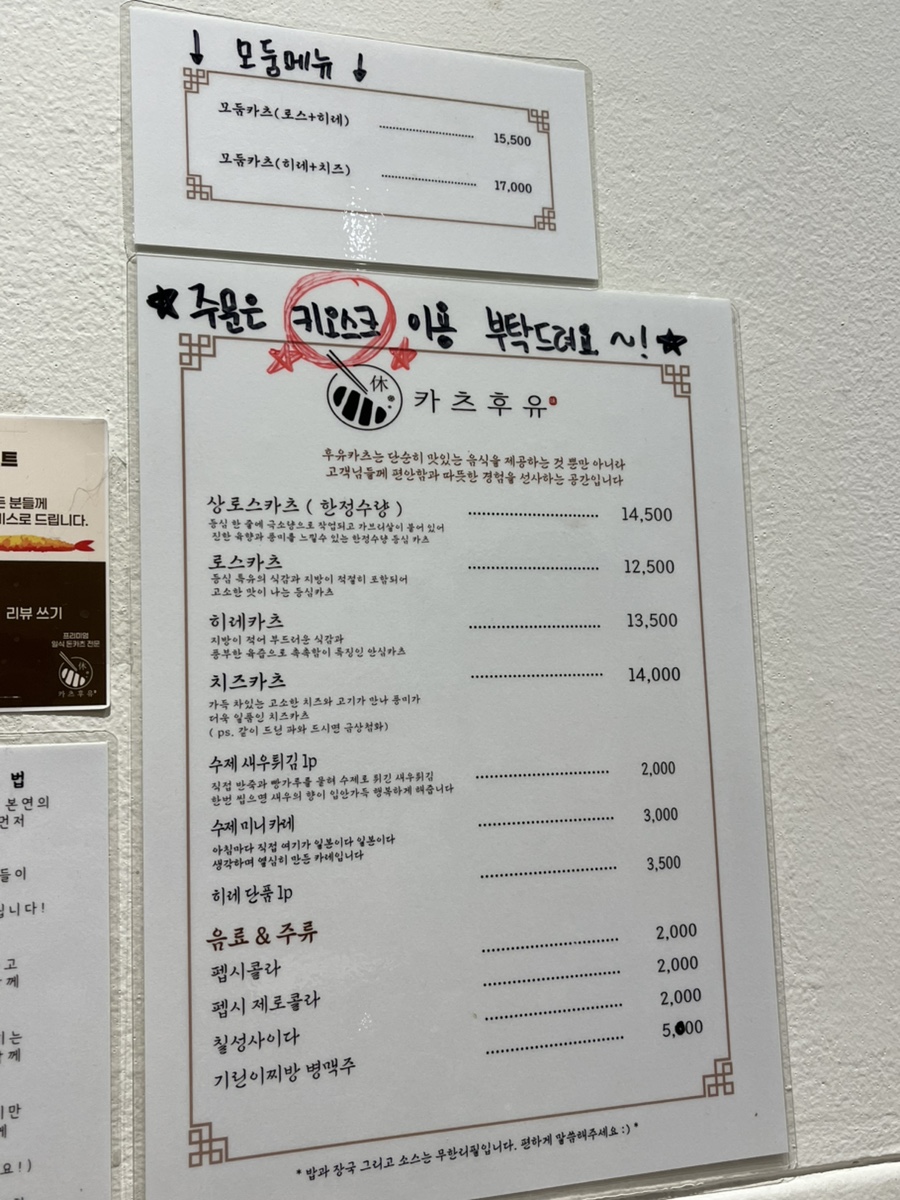 ↓ 모둠메뉴 ↓
모둠카츠(로스+히레) 15,500
모둠카츠(히레+치즈) 17,000
★ 주문은 키오스크 이용 부탁드려요 ~! ★
休
카츠후유
후유카츠는 단순히 맛있는 음식을 제공하는 것 뿐만 아니라
고객님들께 편안함과 따뜻한 경험을 선사하는 공간입니다
상로스카츠 ( 한정수량 ) 14,500
등심 한 줄에 극소량으로 작업되고 가브리살이 붙어 있어
진한 육향과 풍미를 느낄수 있는 한정수량 등심 카츠
로스카츠 12,500
등심 특유의 식감과 지방이 적절히 포함되어
고소한 맛이 나는 등심카츠
히레카츠 13,500
지방이 적어 부드러운 식감과
풍부한 육즙으로 촉촉함이 특징인 안심카츠
치즈카츠 14,000
가득 차있는 고소한 치즈와 고기가 만나 풍미가
더욱 일품인 치즈카츠
( ps. 같이 드린 과와 드시면 금상첨화)
수제 새우튀김 1p 2,000
직접 반죽과 빵가루를 올려 수제로 튀긴 새우튀김
한번 씹으면 새우의 향이 입안가득 행복하게 해줍니다
수제 미니 카레 3,000
아침마다 직접 여기가 일본이다 일본이다
생각하며 열심히 만든 카레입니다
히레 단품 1p 3,500
음료 & 주류
펩시콜라 2,000
펩시 제로콜라 2,000
칠성사이다 2,000
기린이찌방 병맥주 5,000
* 밥과 장국 그리고 소스는 무한리필입니다. 편하게 말씀해주세요 :) *
트
든 분들께
비스로 드립니다.
리뷰 쓰기
프리미엄
일식 돈카츠 전문
休
카츠후유
법
본연의
먼저
들이
립니다!
고
께
기는
함께
지만
께
요!)